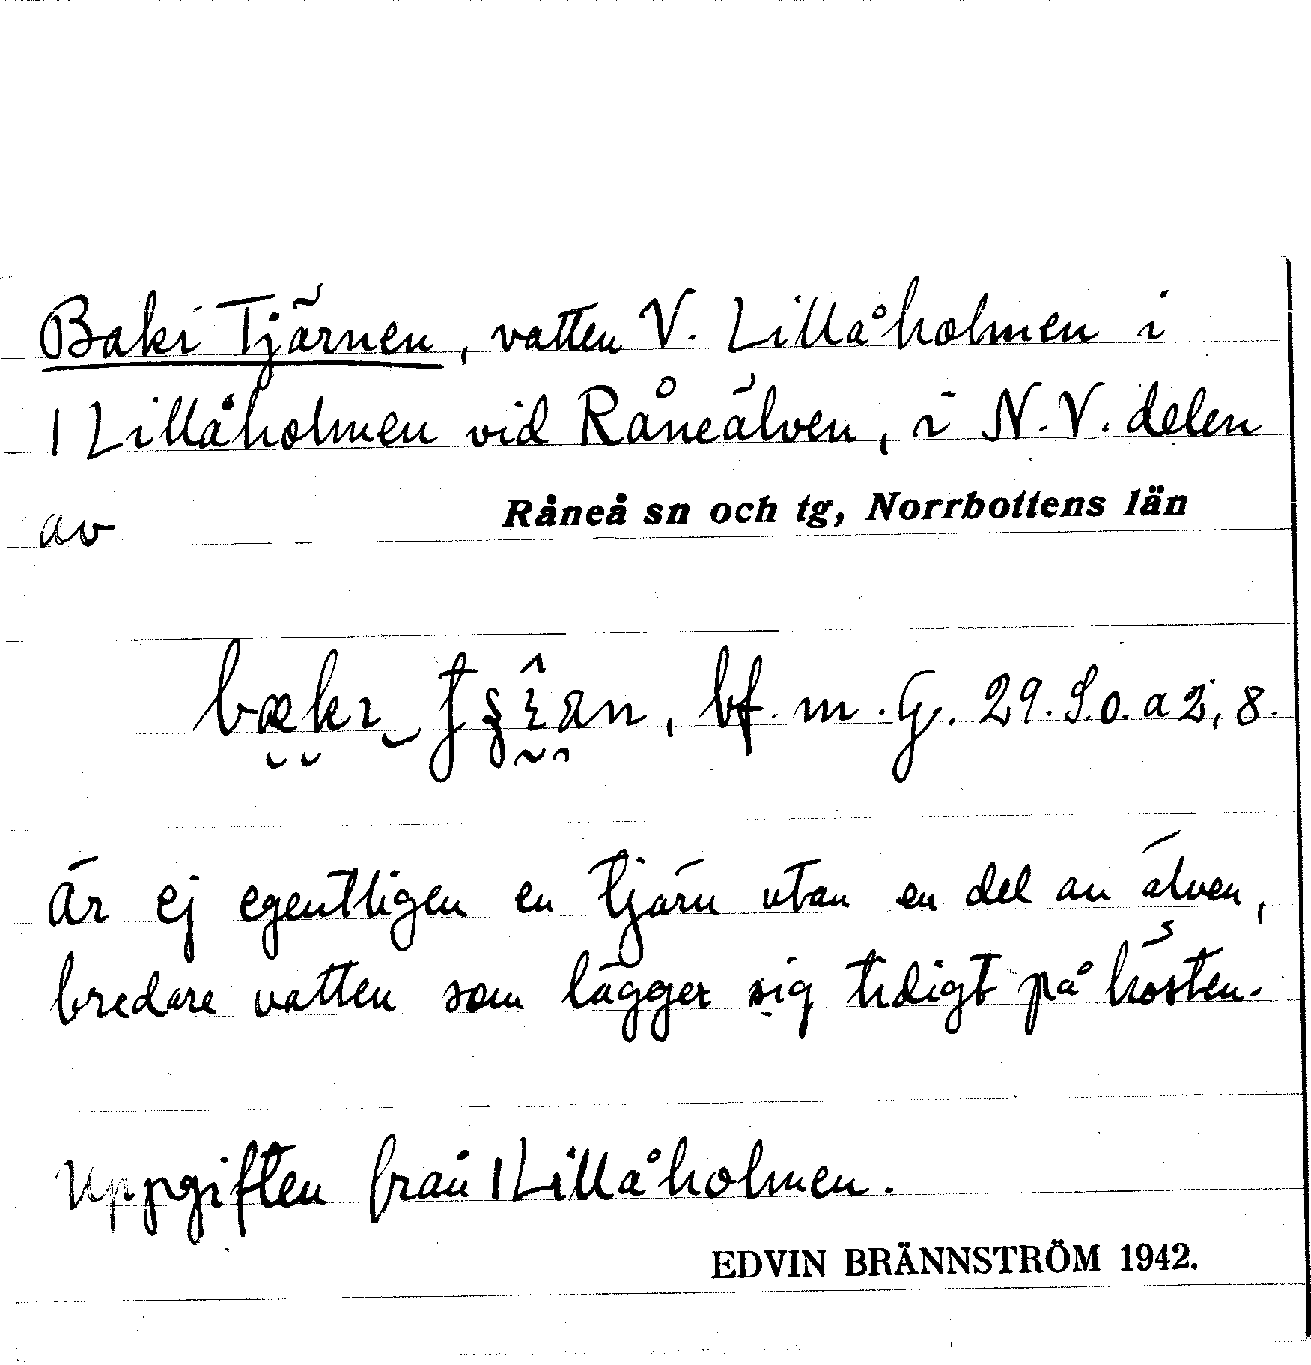 Baki Tjärnen, vatten V. Lillåholmen i
1 Lillåholmen vid Råneälven, i N.V. delen
av Råneå sn och tg, Norrbottens län
bf. m. G. 29. S.o. a 2, 8.
Är ej egentligen en tjärn utan en del av älven,
bredare vatten som lägger sig tidigt på hösten.
Uppgiften från 1 Lillåholmen.
EDVIN BRÄNNSTRÖM 1942.